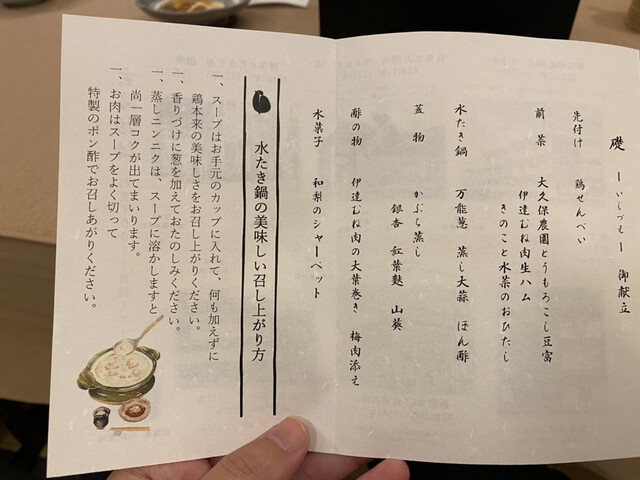 礎 ーいしづえー 御献立
先付け 鶏せんべい
前菜 大久保農園とうもろこし豆富
伊達むね肉生ハム
きのこと水菜のおひたし
水たき鍋 万能葱 蒸し大蒜 ぽん酢
蓋物 かぶら蒸し
銀杏 紅葉麩 山葵
酢の物 伊達むね肉の大葉巻き 梅肉添え
水菓子 和梨のシャーベット
水たき鍋の美味しい召し上がり方
一、スープはお手元のカップに入れて、何も加えずに
鶏本来の美味しさをお召し上がりください。
一、香りづけに葱を加えておたのしみください。
一、蒸しニンニクは、スープに溶かしますと
尚一層コクが出てまいります。
一、お肉はスープをよく切って
特製のポン酢でお召しあがりください。